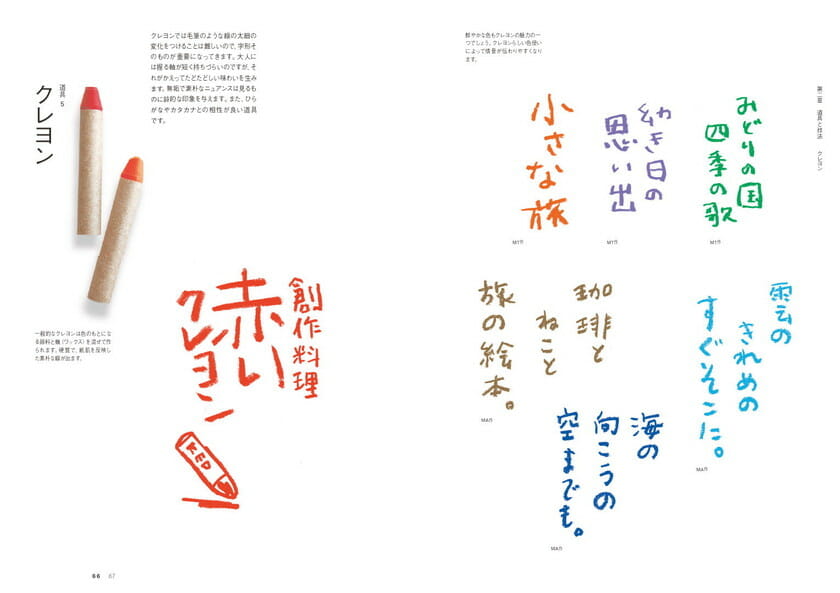 道具 5
クレヨン
クレヨンでは毛筆のような線の太細の
変化をつけることは難しいので、字形そ
のものが重要になってきます。大人に
は握る軸が短く持ちづらいのですが、そ
れがかえってたどたどしい味わいを生み
ます。無垢で素朴なニュアンスは見るも
のに詩的な印象を与えます。また、ひら
がなやカタカナとの相性が良い道具
です。
一般的なクレヨンは色のもとにな
る顔料と蝋(ワックス)を混ぜて作
られます。硬質で、紙肌を反映し
た素朴な線が出ます。
創作料理
赤い
クレヨン
RED
66 67
鮮やかな色もクレヨンの魅力の一
つでしょう。クレヨンらしい色使い
によって情景が伝わりやすくなり
ます。
第二章 道具と技法 クレヨン
みどりの国
四季の歌
MT作
幼き日の
思い出
MT作
小さな旅
MT作
雲の
きれめの
すぐそこに。
MA作
珈琲と
ねこと
旅の絵本。
MA作
海の
向こうの
空までも。
MA作